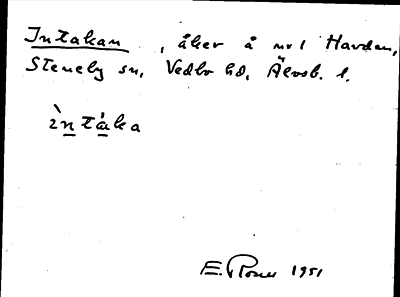 Intakan, åker å nr 1 Havden,
Steneby sn, Vedbo hd, Älvsb. l.
ìntáka
E. Rosu 1951